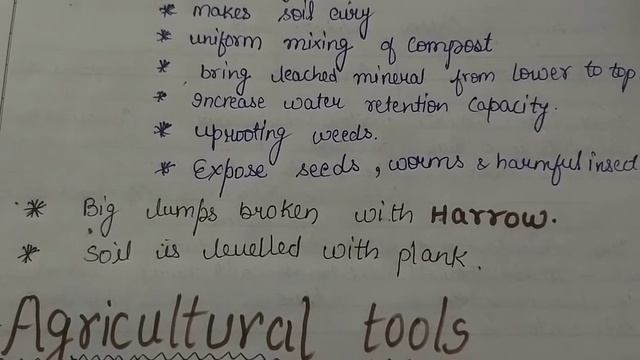 * makes soil airy
* uniform mixing of compost
* bring leached mineral from lower to top
* Increase water retention capacity.
* uprooting weeds.
* Expose seeds, worms & harmful insect
* Big lumps broken with Harrow.
* Soil is levelled with plank.
Agricultural tools